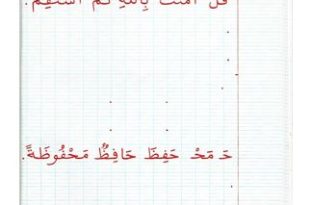 قُلْ آمَنْتُ بِاللهِ ثُمَّ اسْتَقِمْ.
حَـ مَحْـ حَفِظَ حَافِظٌ مَحْفُوظَةً.